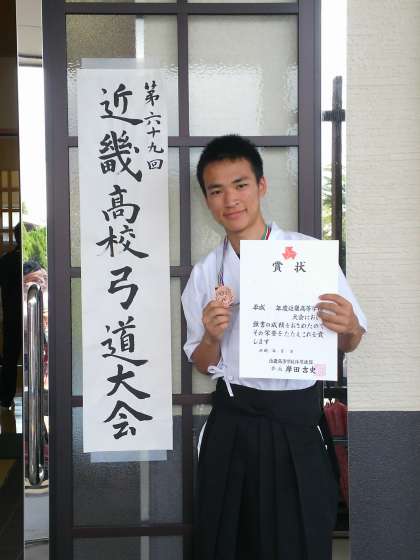 第六十九回
近畿高校弓道大会
賞状
平成 年度近畿高等学
大会におい
頭書の成績をおさめたので
その栄誉をたたえこれを賞
します
岸田吉史